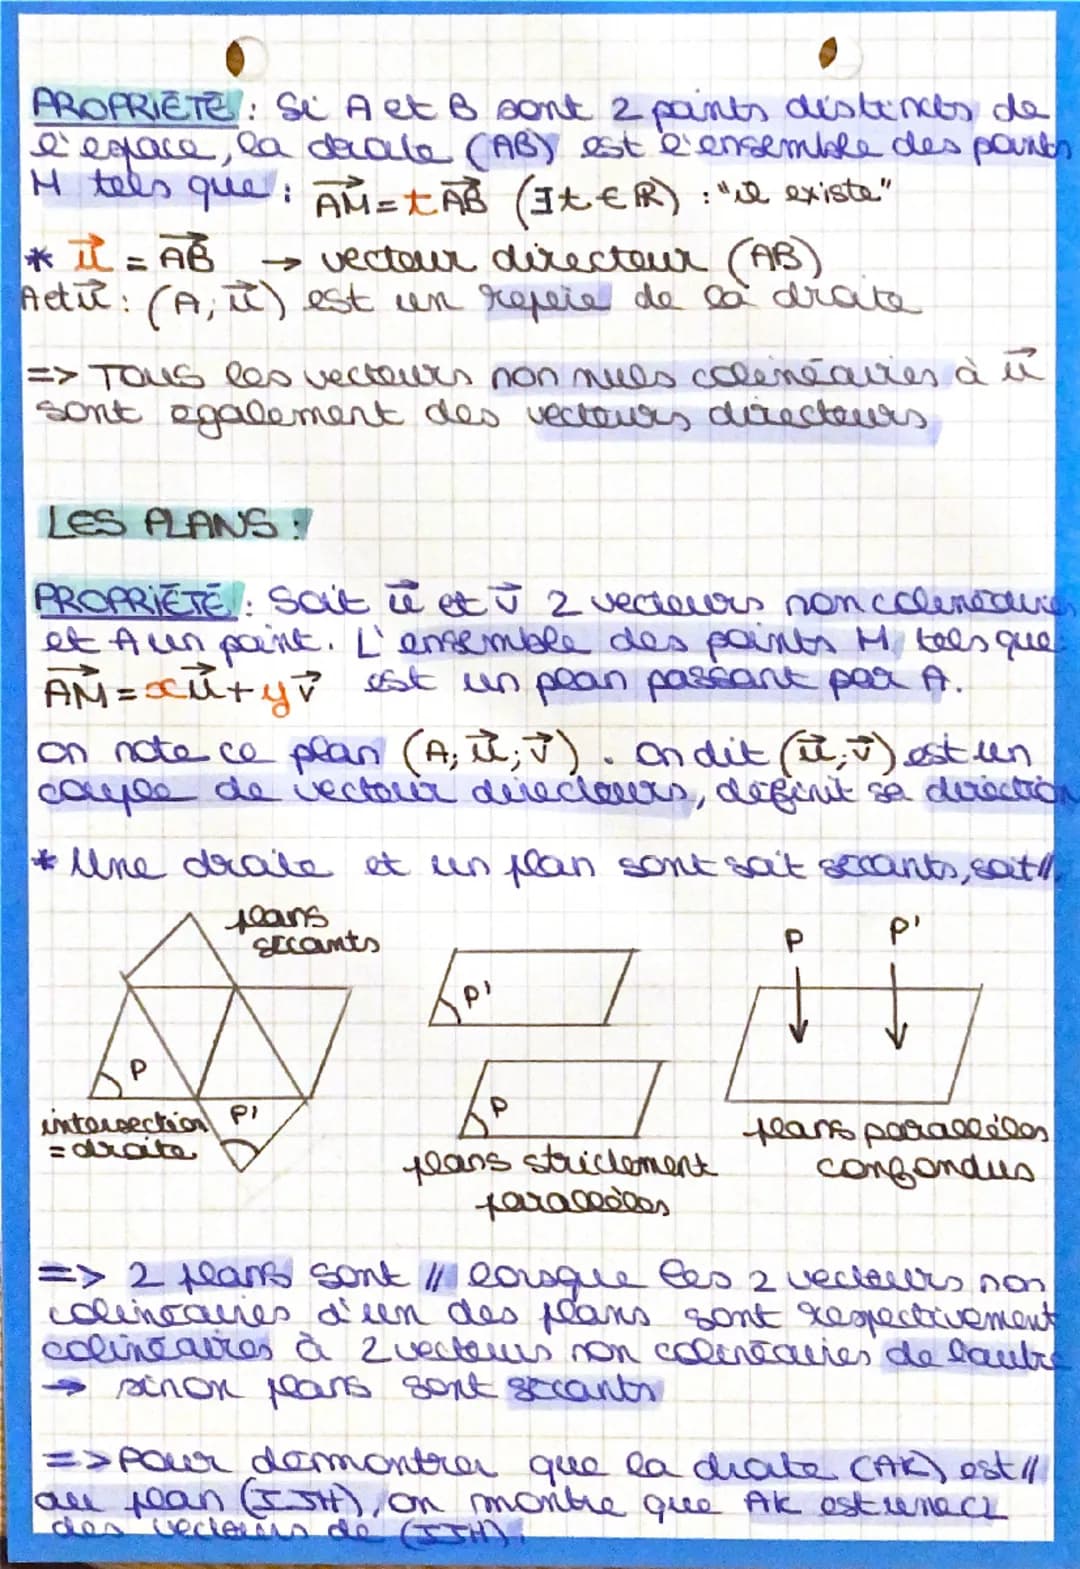 PROPRIÉTÉ : Si A et B sont 2 points distincts de
l'espace, la droite (AB) est l'ensemble des points
M tels que : AM⃗ = t AB⃗ (∃t ∈ ℝ) : "il existe"
* u⃗ = AB⃗ → vecteur directeur (AB)
A et u⃗ : (A; u⃗) est un repère de la droite
=> TOUS les vecteurs non nuls colinéaires à u⃗
sont egalement des vecteurs directeurs
LES PLANS :
PROPRIÉTÉ : Soit u⃗ et v⃗ 2 vecteurs non colinéaires
et A un point. L'ensemble des points M, tels que
AM⃗ = xu⃗ + yv⃗ est un plan passant par A.
On note ce plan (A; u⃗; v⃗). On dit (u⃗; v⃗) est un
couple de vecteur directeurs, définit sa direction
* Une droite et un plan sont soit sécants, soit //
plans
sécants
P
P'
intersection
= droite
P'
P
plans strictement
parallèles
P P'
plans parallèles
confondus
=> 2 plans sont // lorsque les 2 vecteurs non
colinéaires d'un des plans sont respectivement
colinéaires à 2 vecteurs non colinéaires de l'autre
→ sinon plans sont sécants
=> Pour démontrer que la droite (AK) est //
au plan (IJH), on montre que AK est une CL
des vecteurs de (IJH).